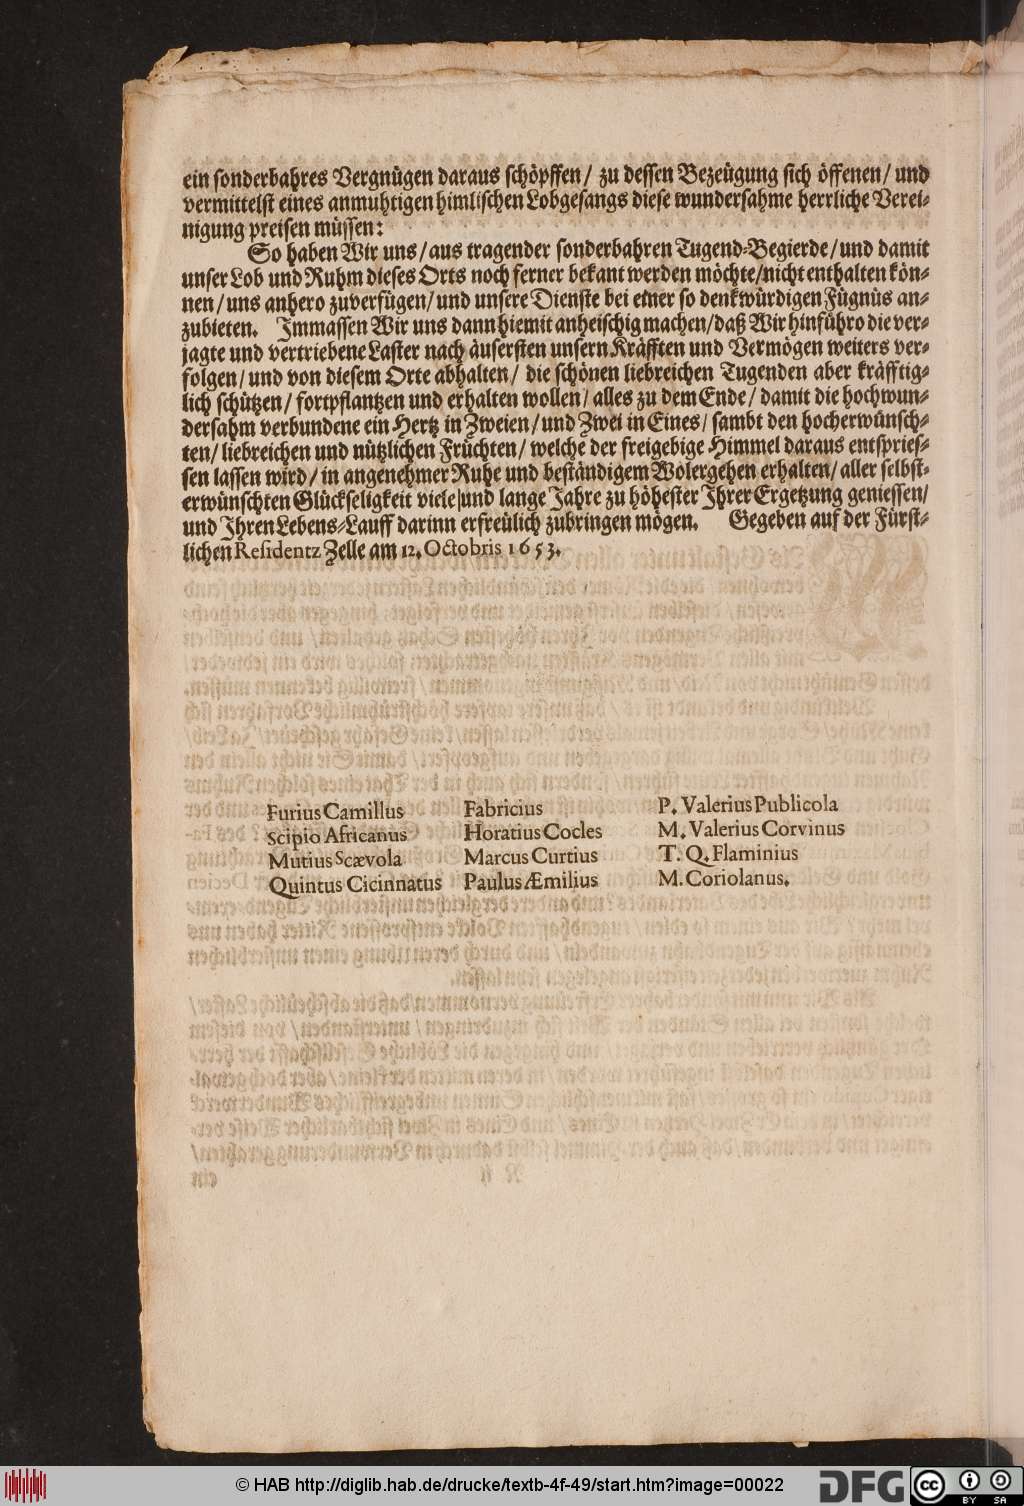 ein sonderbahres Vergnügen daraus schöpffen / zu dessen Bezeügung sich öffenen / und
vermittelst eines anmuhtigen himlischen Lobgesangs diese wundersahme herrliche Verei-
nigung preisen müssen:
So haben Wir uns / aus tragender sonderbahren Tugend-Begierde / und damit
unser Lob und Ruhm dieses Orts noch ferner bekant werden möchte / nicht enthalten kön-
nen / uns anhero zuverfügen / und unsere Dienste bei einer so denkwürdigen Fügnüs an-
zubieten. Immassen Wir uns dann hiemit anheischig machen / daß Wir hinführo die ver-
jagte und vertriebene Laster nach äusersten unsern Kräfften und Vermögen weiters ver-
folgen / und von diesem Orte abhalten / die schönen liebreichen Tugenden aber kräfftig-
lich schützen / fortpflantzen und erhalten wollen / alles zu dem Ende / damit die hochwun-
dersahm verbundene ein Hertz in Zweien / und Zwei in Eines / sambt den hocherwünsch-
ten / liebreichen und nützlichen Früchten / welche der freigebige Himmel daraus entspries-
sen lassen wird / in angenehmer Ruhe und beständigem Wolergehen erhalten / aller selbst-
erwünschten Glückseligkeit viele / und lange Jahre zu höhester Ihrer Ergetzung geniessen /
und Ihren Lebens-Lauff darinn erfreülich zubringen mögen. Gegeben auf der Fürst-
lichen Residentz Zelle am 12. Octobris 1653.
Furius Camillus Fabricius P. Valerius Publicola
Scipio Africanus Horatius Cocles M. Valerius Corvinus
Mutius Scævola Marcus Curtius T. Q. Flaminius
Quintus Cicinnatus Paulus Æmilius M. Coriolanus.
© HAB http://diglib.hab.de/drucke/textb-4f-49/start.htm?image=00022
DFG
cc BY SA